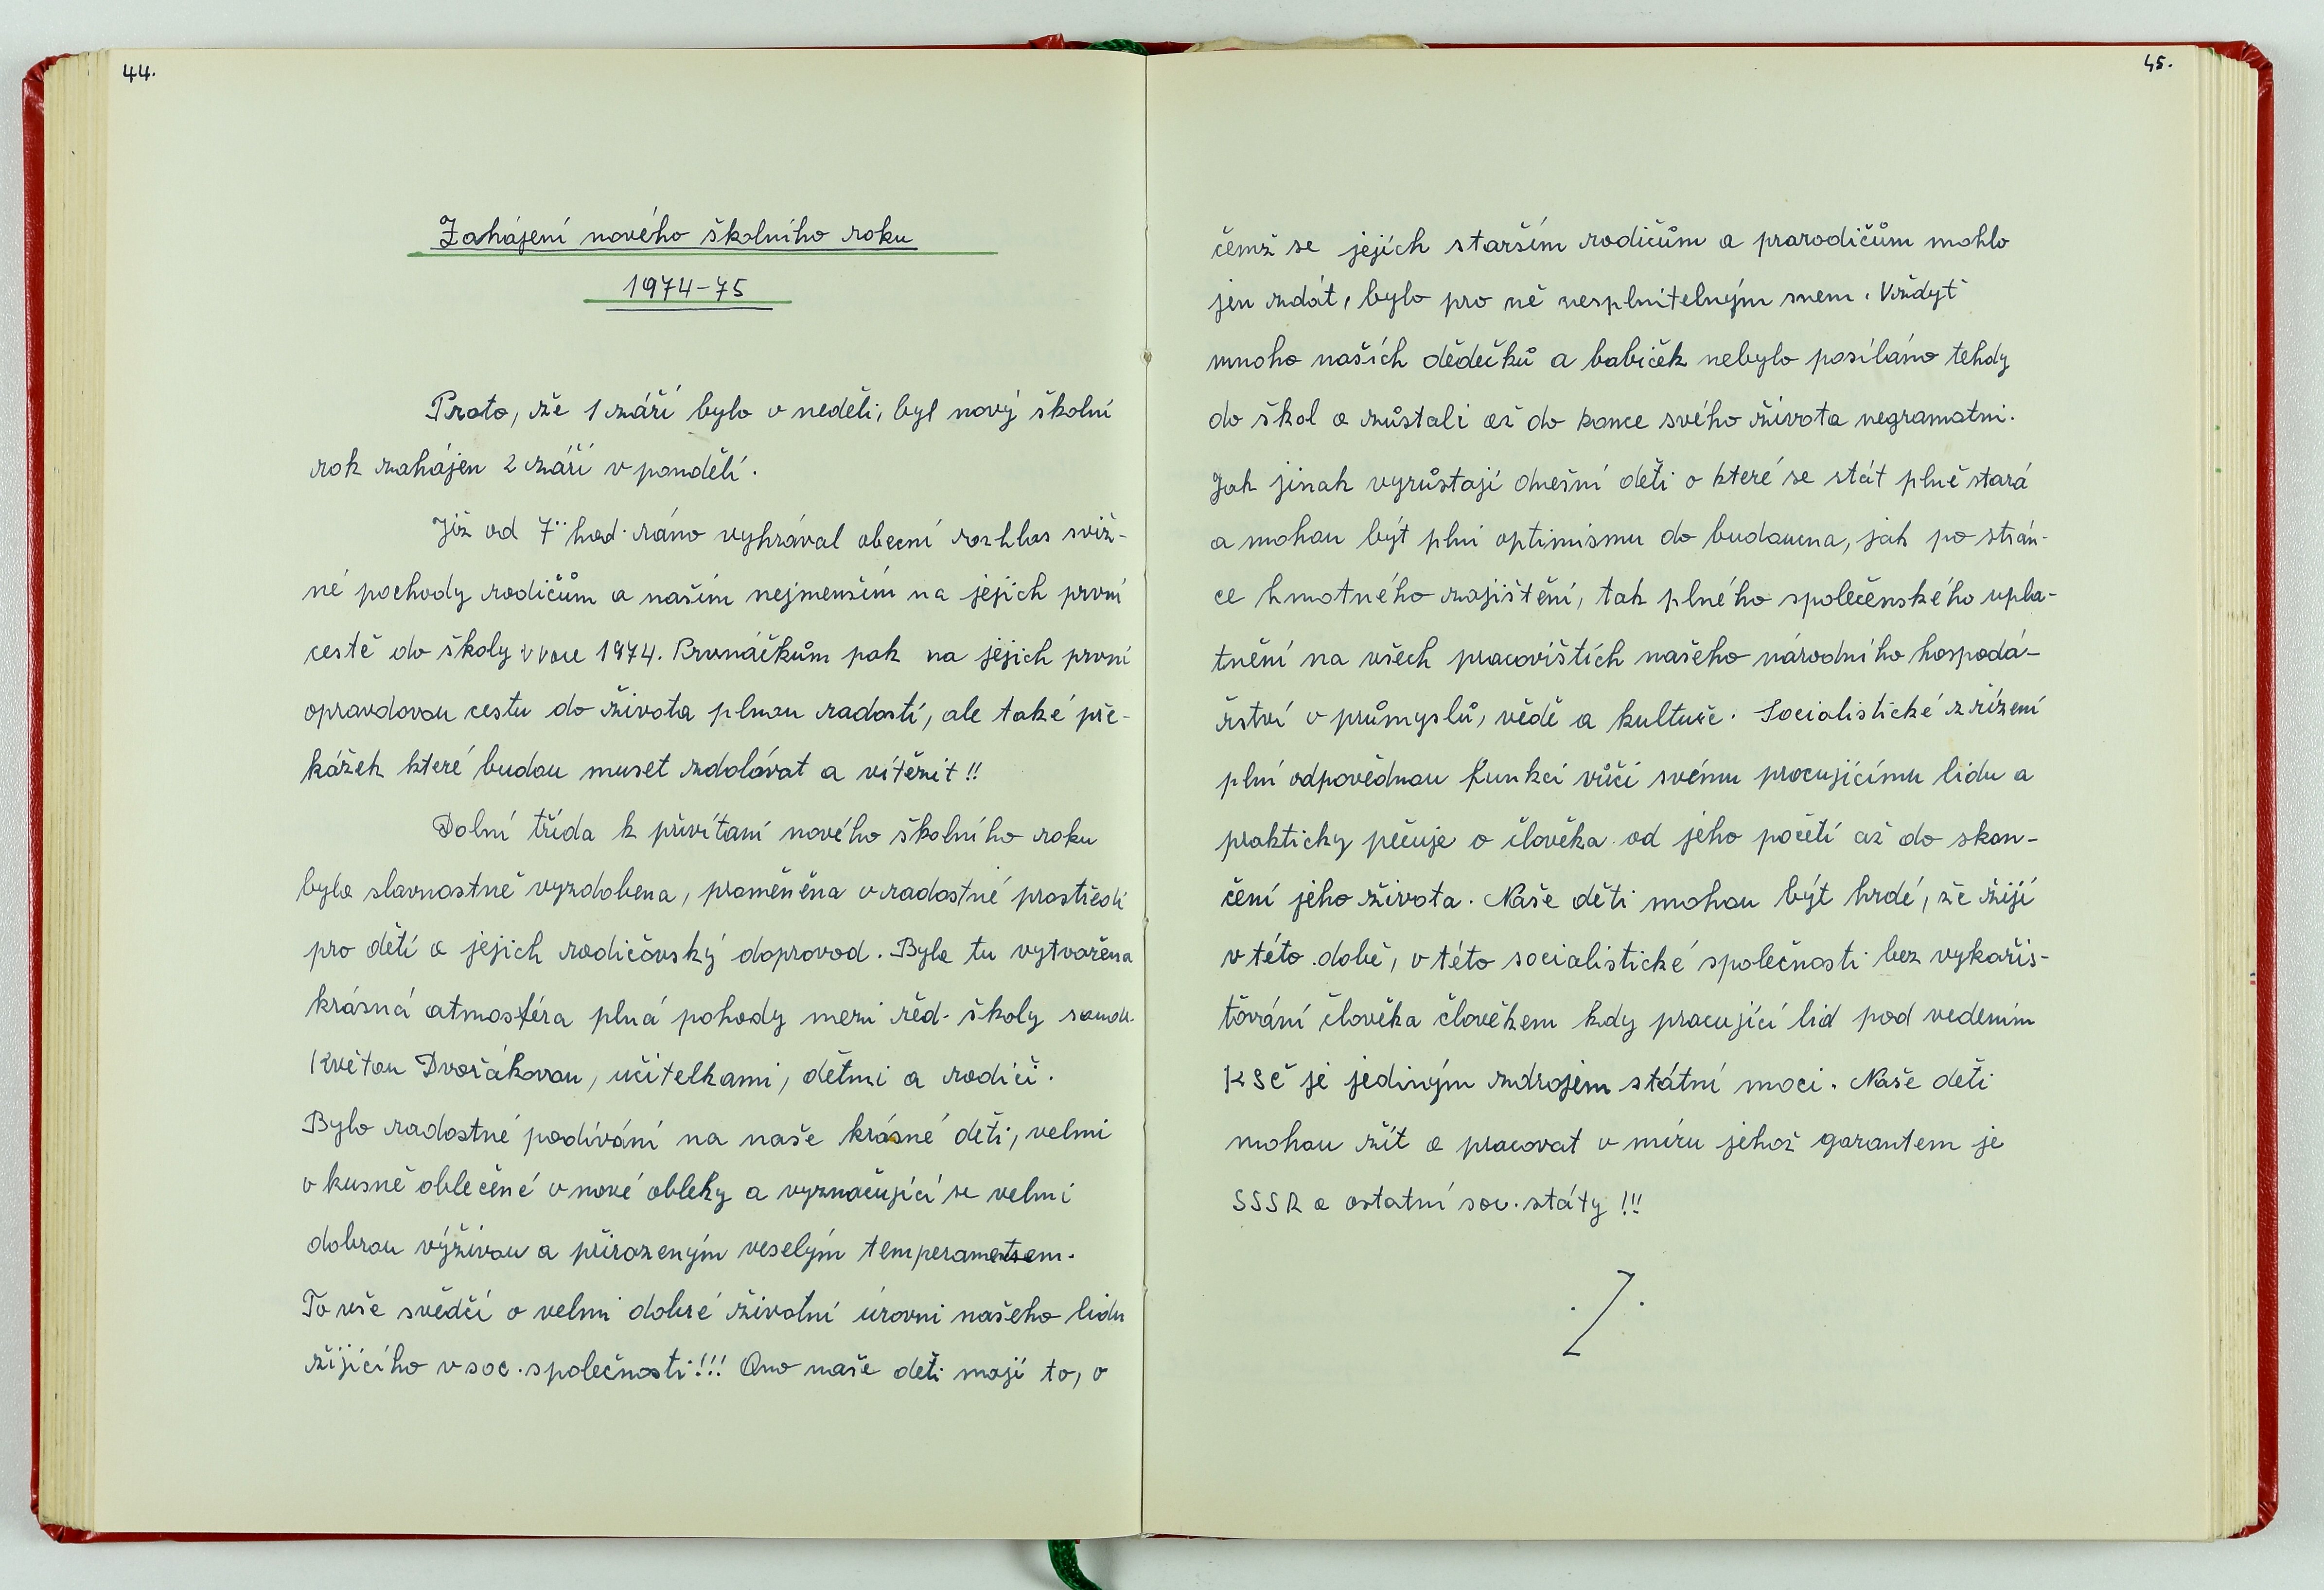 44.
Zahájení nového školního roku
1974-75
Proto, že 1 září bylo v neděli, byl nový školní
rok zahájen 2 září v pondělí.
Již od 7 hod. ráno vyhrával obecní rozhlas sviž-
né pochody rodičům a naším nejmenším na jejich první
cestě do školy v roce 1974. Prvnáčkům pak na jejich první
opravdovou cestu do života plnou radostí, ale také pře-
kážek které budou muset zdolávat a vítězit!!
Dolní třída k přivítaní nového školního roku
byla slavnostně vyzdobena, proměněna v radostné prostředí
pro dětí a jejich rodičovský doprovod. Byla tu vytvořena
krásná atmosféra plná pohody mezi řed. školy soudr.
Květou Dvořákovou, učitelkami, dětmi a rodiči.
Bylo radostné podívání na naše krásné děti, velmi
vkusně oblečené v nové obleky a vyznačující se velmi
dobrou výživou a přirozeným veselým temperamentem.
To vše svědčí o velmi dobré životní úrovni našeho lidu
žijícího v soc. společnosti!!! Ano naše děti mají to, o
45.
čemž se jejích starším rodičům a prarodičům mohlo
jen zdát, bylo pro ně nesplnitelným snem. Vždyť
mnoho našich dědečků a babiček nebylo posíláno tehdy
do škol a zůstali až do konce svého života negramotni.
Jak jinak vyrůstají dnešní děti o které se stát plně stará
a mohou být plni optimismu do budoucna, jak po strán-
ce hmotného zajištění, tak plného společenského upla-
tnění na všech pracovištích našeho národního hospodá-
řství v průmyslů, vědě a kultuře. Socialistické zřízení
plní odpovědnou funkci vůči svému pracujícímu lidu a
prakticky pečuje o člověka od jeho početí až do skon-
čení jeho života. Naše děti mohou být hrdé, že žijí
v této době, v této socialistické společnosti bez vykořis-
ťování člověka člověkem kdy pracující lid pod vedením
KSČ je jediným zdrojem státní moci. Naše děti
mohou žít a pracovat v míru jehož garantem je
SSSR a ostatní soc. státy!!!